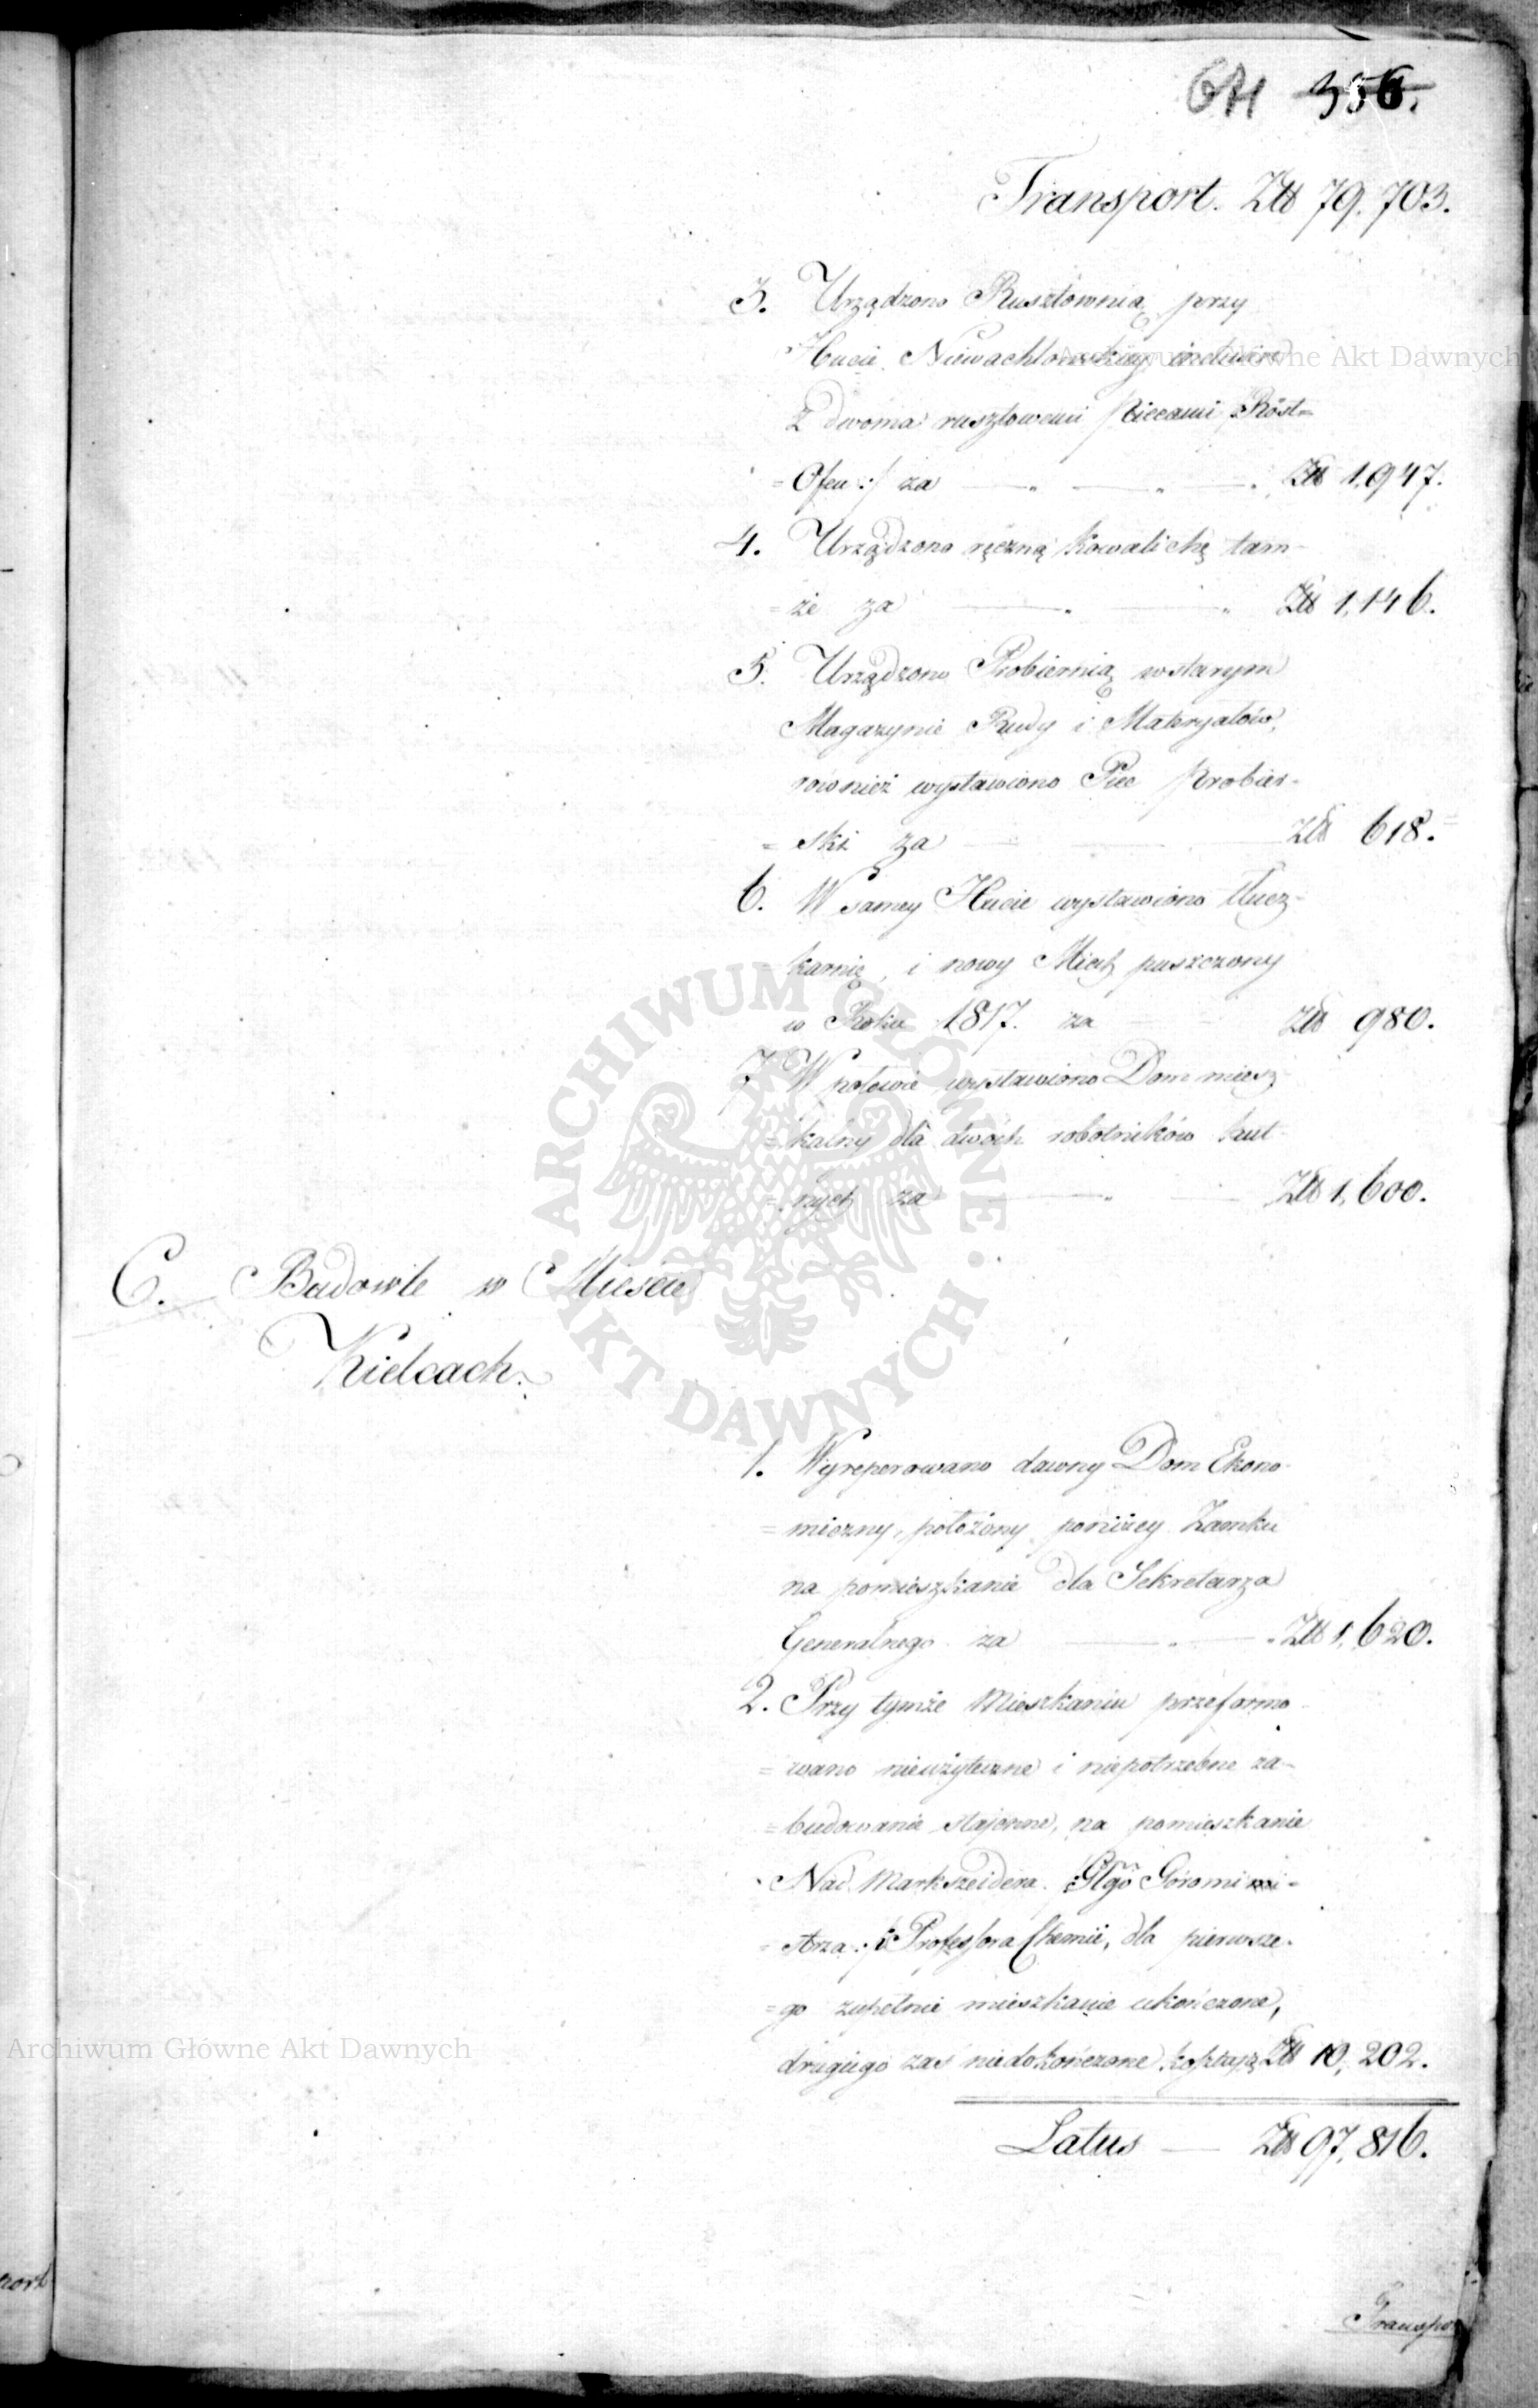 671 356.
Transport. Złł 79.703.
3. Urządzono Rusztownią przy
Hucie Niewachlowskiey inclusive
z dwoma rusztowemi Piecami /: Röst=
= Ofen :/ za — „ — „ — „ Złł 1,947.
4. Urządzono ręczną Kowalichę tam-
= że za — „ — „ Złł 1,146.
5. Urządzono Probiernią w starym
Magazynie Rudy i Materyałów,
rownież wystawiono Piec Probier-
= ski za — Złł 618.=
6. W samey Hucie wystawiono tłucz-
= karnię, i nowy Miech puszczony
w Roku 1817. za — Złł 980.
7. W połowie wystawiono Dom miesz-
= kalny dla dwóch robotników hut-
= nych za — „ — Złł 1,600.
C. Budowle w Mieście
Kielcach.
1. Wyreperowano dawny Dom Ekono-
= miczny, położony poniżey Zamku
na pomieszkanie dla Sekretarza
Generalnego za — „ — „ Złł 1,620.
2. Przy tymże Mieszkaniu przeformo-
= wano nieużyteczne i niepotrzebne za-
= budowanie stajenne, na pomieszkanie
Nad Markszeidera /: Głgo Góromi-
= strza :/ i Professora Chemii, dla pierwsze-
= go zupełnie mieszkanie ukończone,
drugiego zaś niedokończone kosztują Złł 10,202.
Latus — Złł 97,816.
Transpor
port
ARCHIWUM GŁÓWNE AKT DAWNYCH
Archiwum Główne Akt Dawnych
Archiwum Główne Akt Dawnych